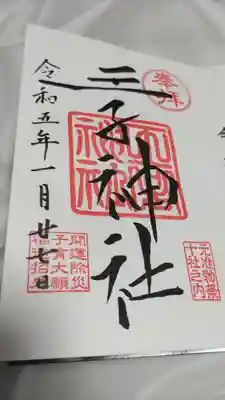 奉拝
王子神社
元准勅祭
十社之内
令和五年一月廿七日
開運除災
子育大願